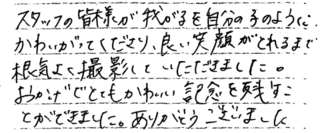 スタッフの皆様が我が子を自分の子のように
かわいがってくださり、良い笑顔がとれるまで
根気よく撮影していただきました。
おかげでとてもかわいい記念を残すこ
とができました。ありがとうございました